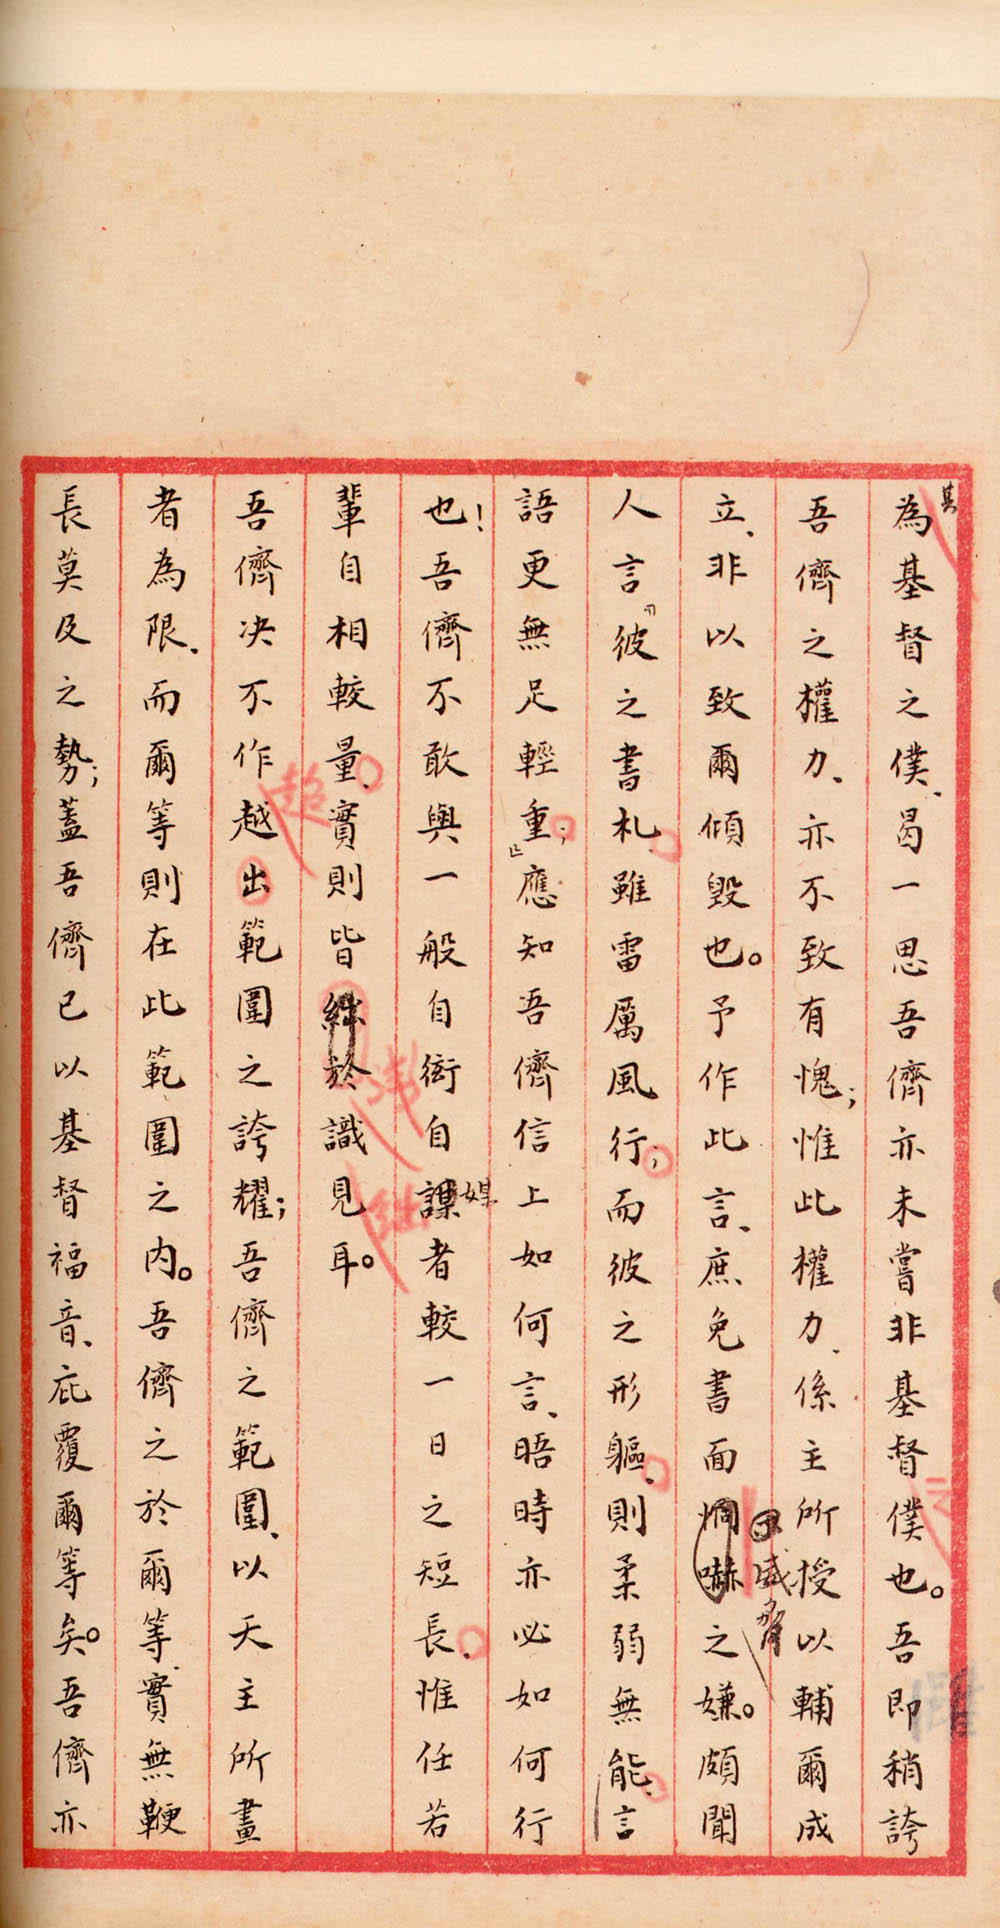 為基督之僕、曷一思吾儕亦未嘗非基督僕也。吾即稍誇
其
之
吾儕之權力、亦不致有愧；惟此權力、係主所授以輔爾成
立、非以致爾傾毀也。予作此言、庶免書面恫嚇之嫌。頗聞
威脅
人言『彼之書札、雖雷厲風行；而彼之形軀、則柔弱無能、言
語更無足輕重；』應知吾儕信上如何言、晤時亦必如何行
也！吾儕不敢與一般自衒自謀者較一日之短長、惟任若
媒
輩自相較量、實則皆絀於識見耳。
吾儕決不作越出範圍之誇耀；吾儕之範圍、以天主所畫
超
者為限、而爾等則在此範圍之內。吾儕之於爾等、實無鞭
長莫及之勢；蓋吾儕已以基督福音、庇覆爾等矣。吾儕亦